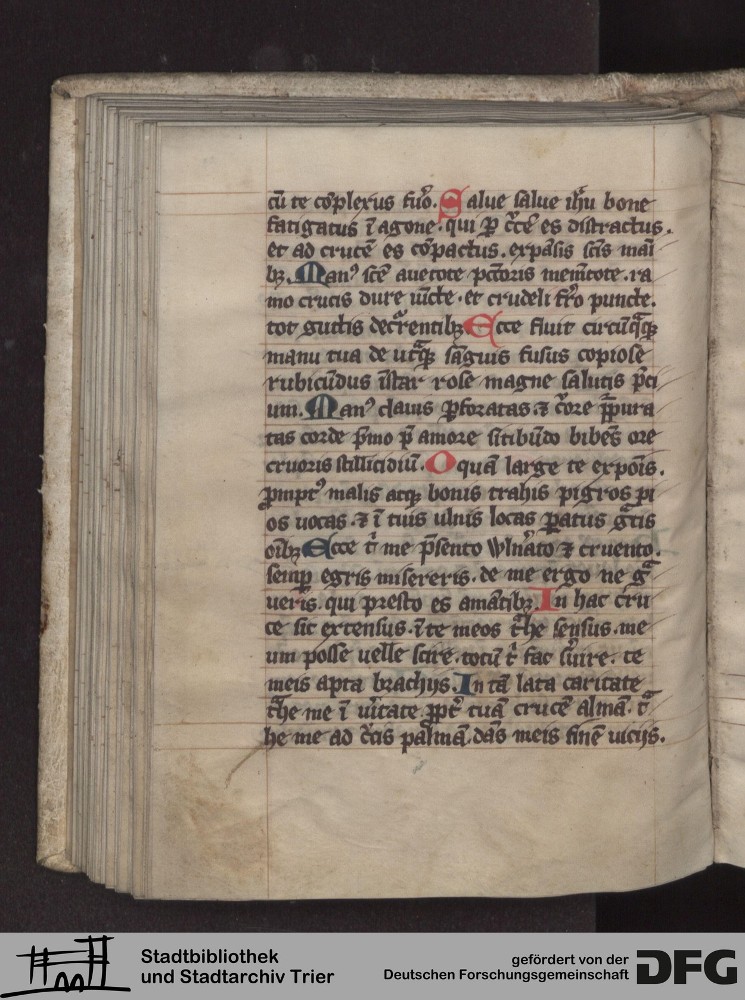 cu te coplexus fuo. Salue salue ihu bone
fatigatus i agone. qui p cce es distractus.
et ad cruce es copactus. expasis scis mai
bȝ. Manꝰ sce auetote pctoris memetote. ra
mo crucis dure iucte. et crudeli fro puncte.
tot guttis decrentibȝ Ecce fluit circuqȝqȝ
manu tua de utqȝ saguis fusus copiose
rubicudus istar rose magne salutis pci
um. Manꝰ clauis pforatas. ⁊ core ppura
tas corde pmo p amore sitibudo bibes ore
cruoris stillicidiu. O qua large te expois.
pmptꝰ malis atqȝ bonis trahis pigros pi
os uocas. ⁊ i tuis ulnis locas patus gtis
oibȝ Ecce t me psento wlnato ⁊ cruento.
semp egris misereris. de me ergo ne g
ueris. qui presto es amatibȝ. In hac cru
ce sic extensus. i te meos the sensus. me
um posse uelle scire. totu t fac suire. te
meis apta brachijs. In ta lata caritate
the me i uitate ppt tua cruce alma. t
he me ad ccis palma. das meis fine uicijs.
Stadtbibliothek
und Stadtarchiv Trier
gefördert von der
Deutschen Forschungsgemeinschaft
DFG